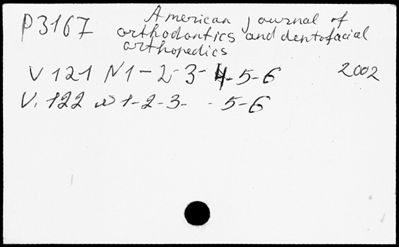 P3167 American journal of
orthodontics and dentofacial
orthopedics
V 121 N1-2-3-4-5-6 2002
V. 122 N1-2-3- -5-6